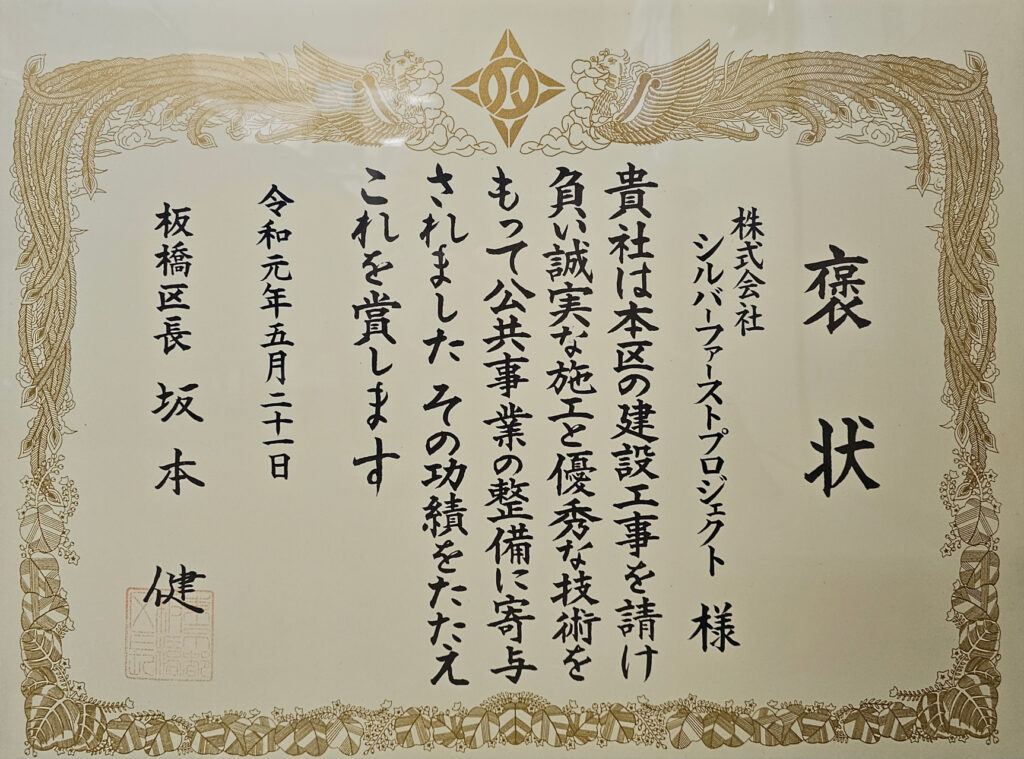 褒状
株式会社
シルバーファーストプロジェクト 様
貴社は本区の建設工事を請け
負い誠実な施工と優秀な技術を
もって公共事業の整備に寄与
されました その功績をたたえ
これを賞します
令和元年五月二十一日
板橋区長 坂本 健